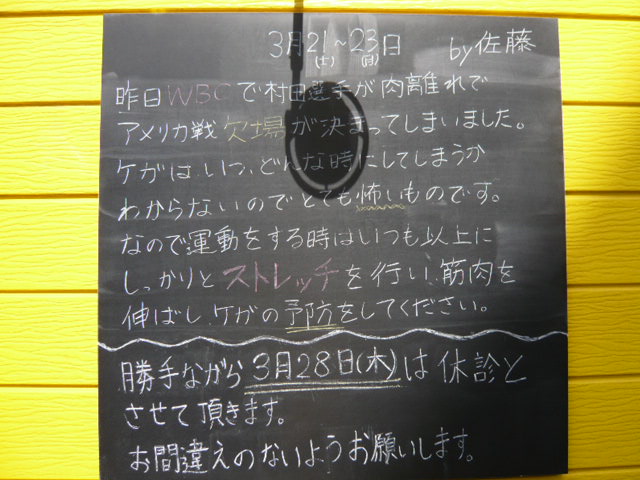 3月21~23日 by佐藤
(土) (月)
昨日WBCで村田選手が肉離れで
アメリカ戦欠場が決まってしまいました。
ケガはいつ、どんな時にしてしまうか
わからないのでとても怖いものです。
なので運動をする時はいつも以上に
しっかりとストレッチを行い、筋肉を
伸ばし、ケガの予防をしてください。
勝手ながら3月28日(木)は休診と
させて頂きます。
お間違えのないようお願いします。